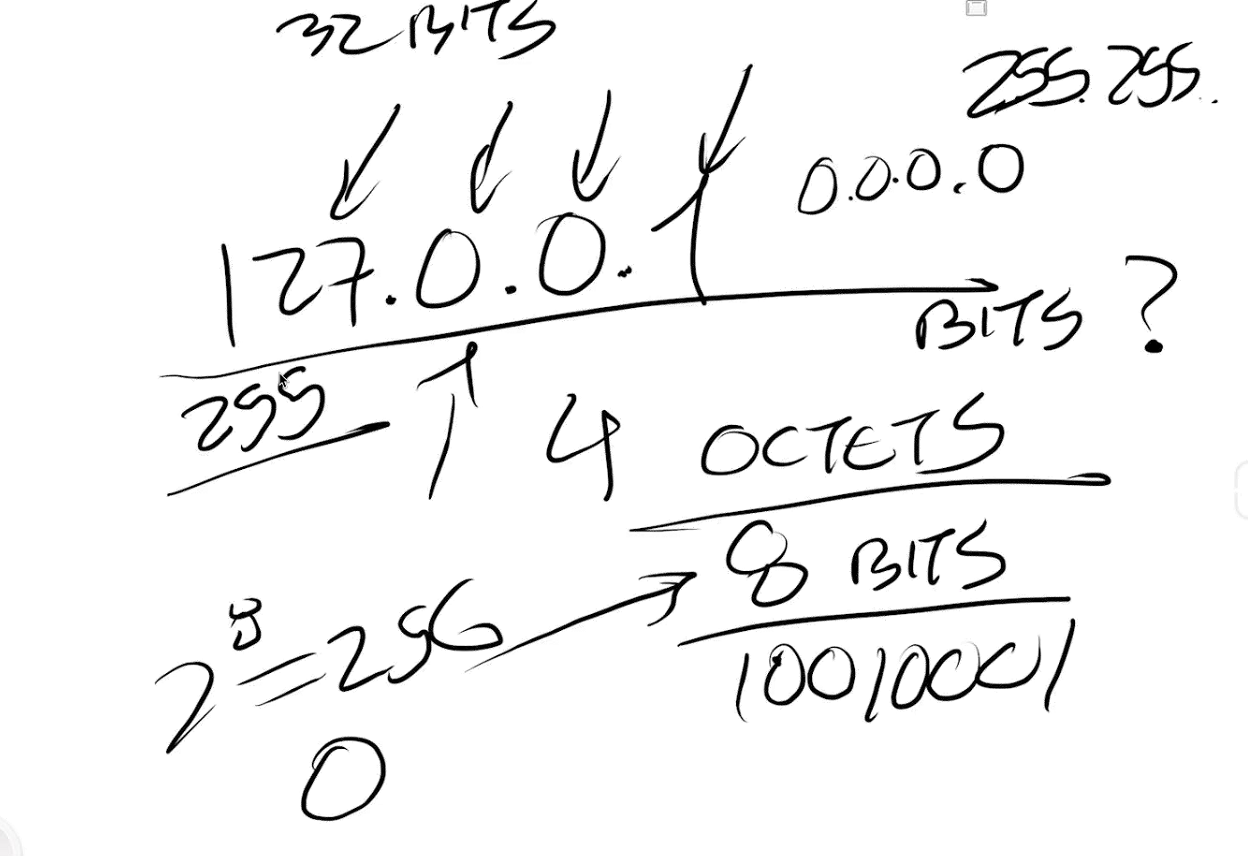 32 BITS
255.255..
0.0.0.0
127.0.0.1
BITS ?
255
4 OCTETS
8 BITS
2⁸=256
10010001
0